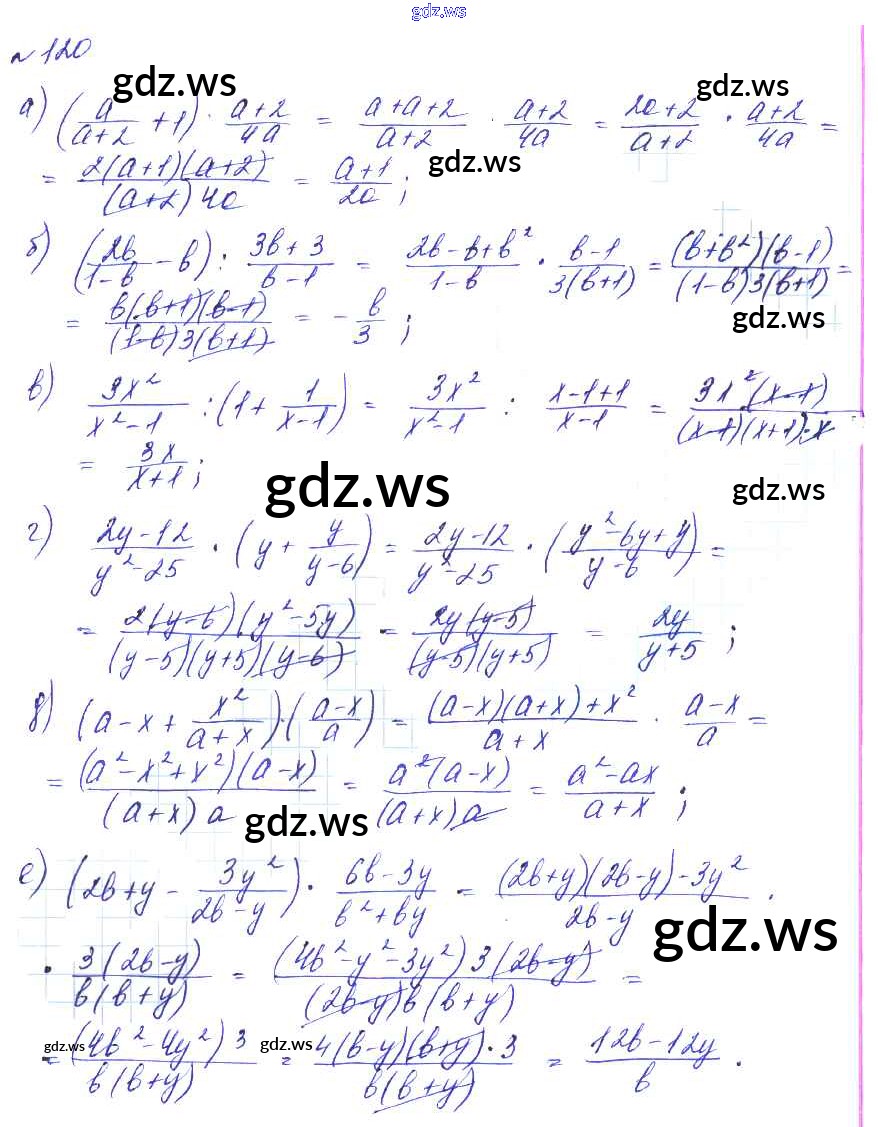 gdz.ws
№120
gdz.ws gdz.ws
а) (a/(a+2) + 1) · (a+2)/(4a) = (a+a+2)/(a+2) · (a+2)/(4a) = (2a+2)/(a+2) · (a+2)/(4a) =
gdz.ws
= (2(a+1)(a+2))/((a+2)4a) = (a+1)/(2a);
б) (2b/(1-b) - b) : (3b+3)/(b-1) = (2b-b+b²)/(1-b) · (b-1)/(3(b+1)) = ((b+b²)(b-1))/((1-b)3(b+1)) =
= (b(b+1)(b-1))/((1-b)3(b+1)) = - b/3;
gdz.ws
в) 3x²/(x²-1) : (1 + 1/(x-1)) = 3x²/(x²-1) : (x-1+1)/(x-1) = (3x²(x-1))/((x-1)(x+1)·x)
= 3x/(x+1);
gdz.ws gdz.ws
г) (2y-12)/(y²-25) · (y + y/(y-6)) = (2y-12)/(y²-25) · ((y²-6y+y)/(y-6)) =
= (2(y-6)(y²-5y))/((y-5)(y+5)(y-6)) = (2y(y-5))/((y-5)(y+5)) = 2y/(y+5);
д) (a-x + x²/(a+x)) · ((a-x)/a) = ((a-x)(a+x)+x²)/(a+x) · (a-x)/a =
= ((a²-x²+x²)(a-x))/((a+x)a) = (a²(a-x))/((a+x)a) = (a²-ax)/(a+x);
gdz.ws
е) (2b+y - 3y²/(2b-y)) · (6b-3y)/(b²+by) = ((2b+y)(2b-y)-3y²)/(2b-y) ·
gdz.ws
· (3(2b-y))/(b(b+y)) = ((4b²-y²-3y²)3(2b-y))/((2b-y)b(b+y)) =
gdz.ws gdz.ws
= ((4b²-4y²)3)/(b(b+y)) = (4(b-y)(b+y)·3)/(b(b+y)) = (12b-12y)/b.